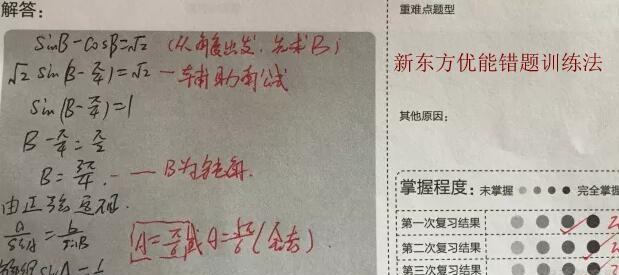 解答:
sinB-cosB=√2 (从角度出发,先求B)
√2 sin(B-π/4)=√2 — 辅助角公式
sin(B-π/4)=1
B-π/4=π/2
B=3π/4. — B为钝角.
由正弦定理.
a/sinA=b/sinB A=π/6或A=5π/6(舍去).
sinA=
重难点题型
新东方优能错题训练法
其他原因:
掌握程度:未掌握 完全掌握
第一次复习结果
第二次复习结果
第三次复习结果